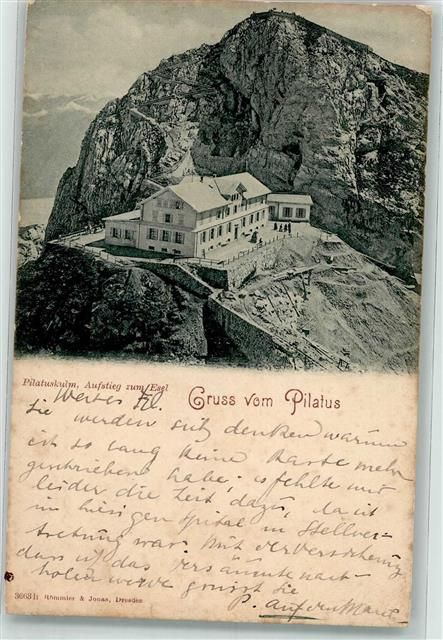 Pilatuskulm, Aufstieg zum Esel
Gruss vom Pilatus
Wertes Frl.
Sie werden sich denken warum
ich so lang keine Karte mehr
geschrieben habe; es fehlte mir
leider die Zeit dazu, da ich
im hiesigen Spital in Stellver-
tretung war. Mit der Versicherung
dass ich das versäumte nach-
holen werde grüsst Sie
P. auf der Maur
3663 b Römmler & Jonas, Dresden